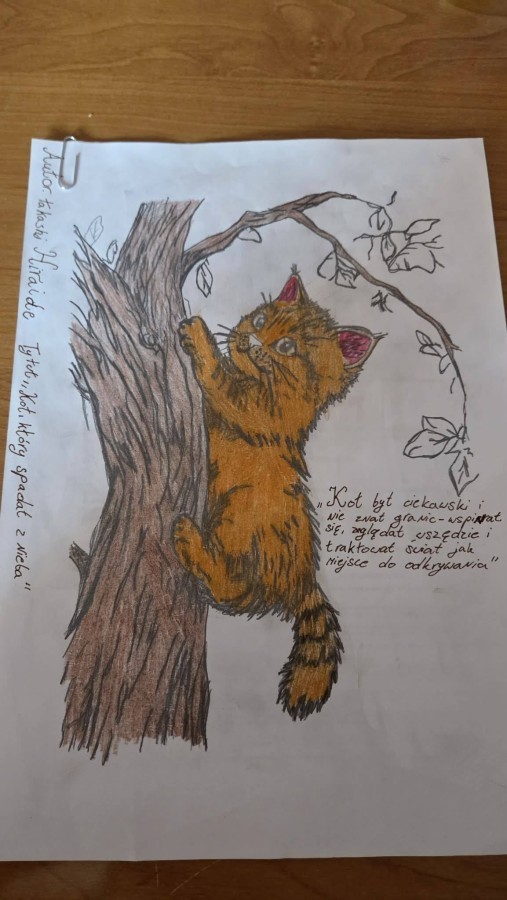 Autor: Takashi Hiraide Tytuł „Kot, który spadał z nieba"
„Kot był ciekawski i
nie znał granic-wspinał
się, zaglądał wszędzie i
traktował świat jak
miejsce do odkrywania"